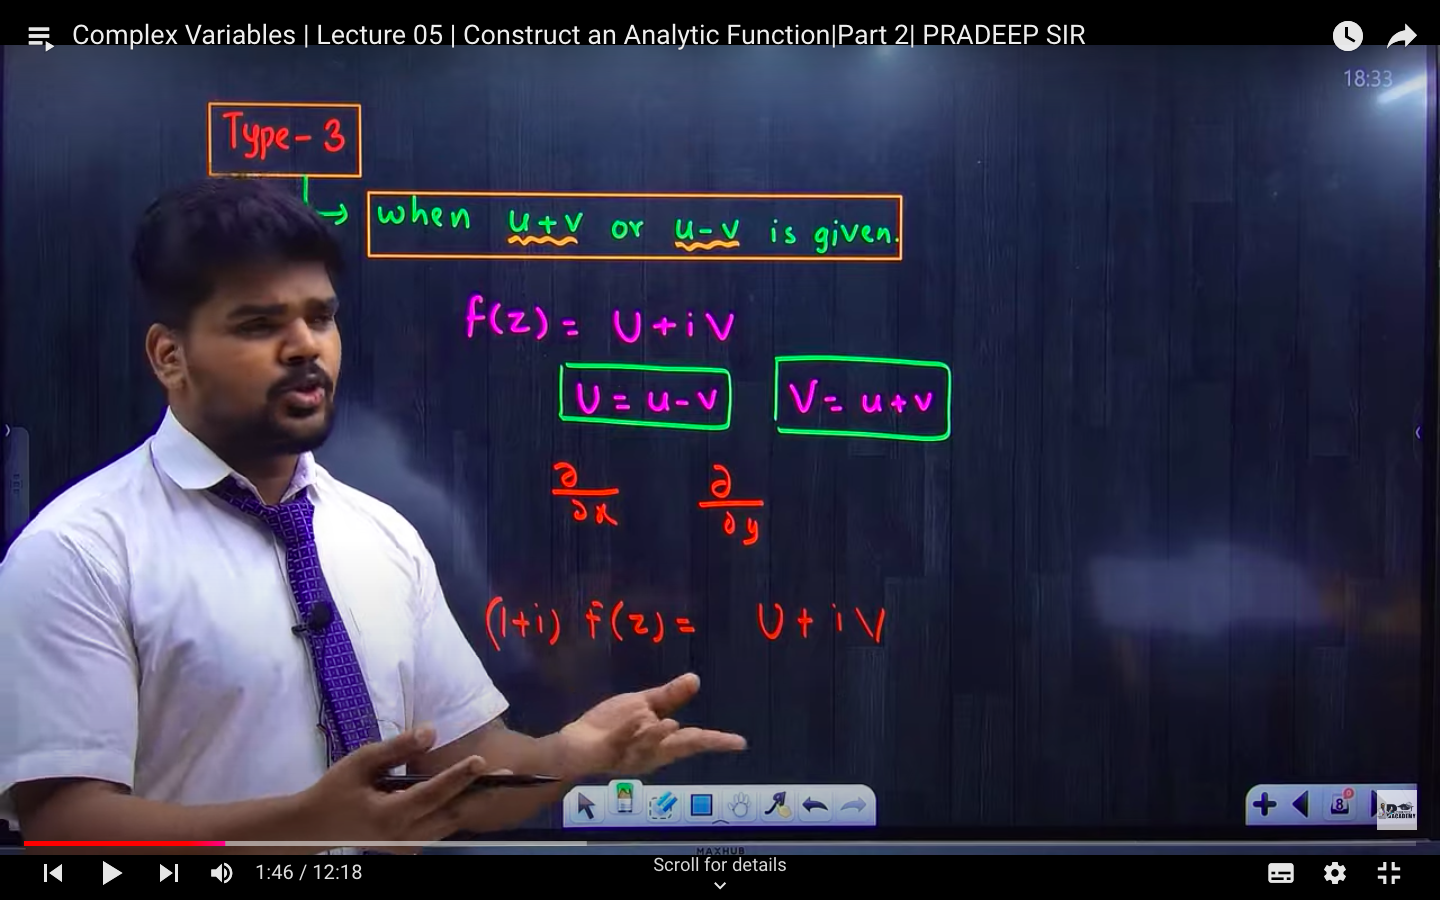 Complex Variables | Lecture 05 | Construct an Analytic Function|Part 2| PRADEEP SIR
18:33
Type-3
when u+v or u-v is given.
f(z) = U+iV
U = u-v V = u+v
∂/∂x ∂/∂y
(1+i) f(z) = U+iV
8
ACADEMY
MAXHUB
1:46 / 12:18
Scroll for details